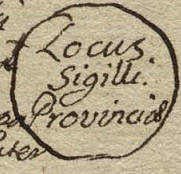 Locus
Sigilli.
Provinciae